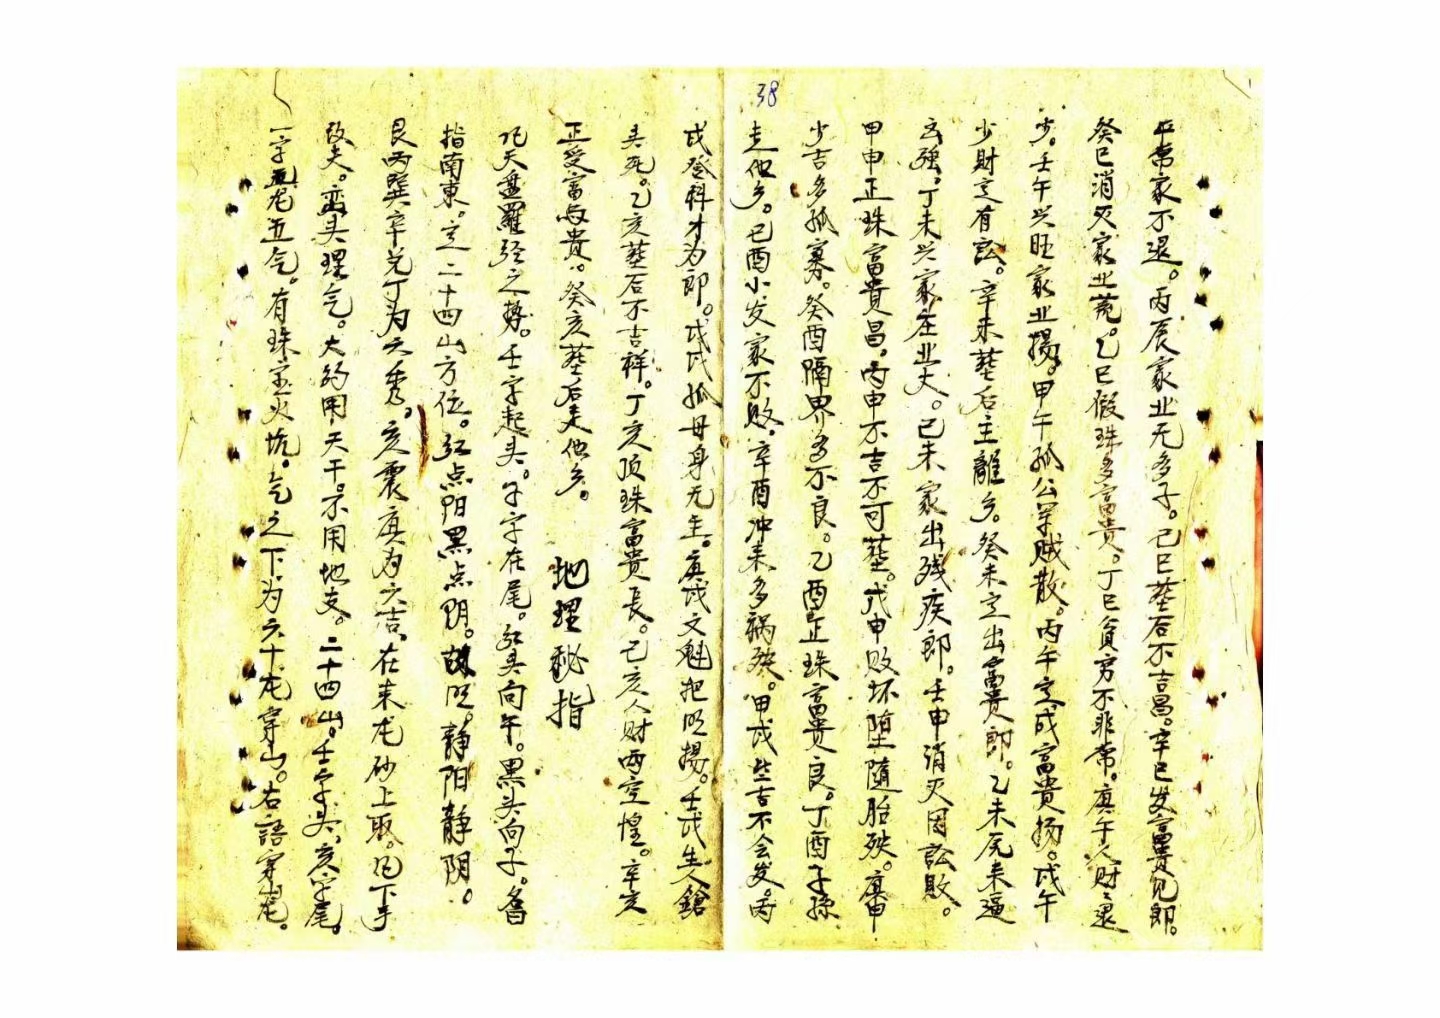 38
平常家不退。丙辰家业无多子。己巳葬后不吉昌。辛巳发富贵见郎。
癸巳消灭家业荒。乙巳假珠多富贵。丁巳贫穷不非常。庚午人财之退
少。壬午兴旺家业揚。甲午孤公军贼散。丙午定成富貴扬。戊午
少財定有訟。辛未葬后主離乡。癸未定出富贵郎。乙未尻来逼
玄强。丁未兴家庄业大。己未家出残疾郎。壬申消灭因訟敗。
甲申正珠富貴昌。丙申不吉不可葬。戊申败坏墮隨胎殃。庚申
少吉多孤寡。癸酉隔界多不良。乙酉正珠富貴良。丁酉子孫
走他乡。己酉小发家不敗。辛酉冲来多祸殃。甲戌些吉不会发。丙
戌登科才为郎。戊戌孤母身无主。庚戌文魁把名揚。壬戌生人鎗
头死。乙亥葬后不吉祥。丁亥顶珠富貴長。己亥人财两空惶。辛亥
正受富与贵。癸亥葬后走他乡。
地理秘指
凡天盤羅经之势。壬字起头。子字在尾。红头向午。黑头向子。名曰
指南東。定二十四山方位。红点阳黑点阴。故曰。静阳静阴。
艮丙巽辛兑丁为六秀。亥震庚为六吉、在来龙砂上取。凡下手
功夫。峦头理气。大约用天干。不用地支。二十四山。壬字头。亥字尾。
一字五龙五气。有珠宝火坑。气之下为六十龙穿山。右語穿龙。